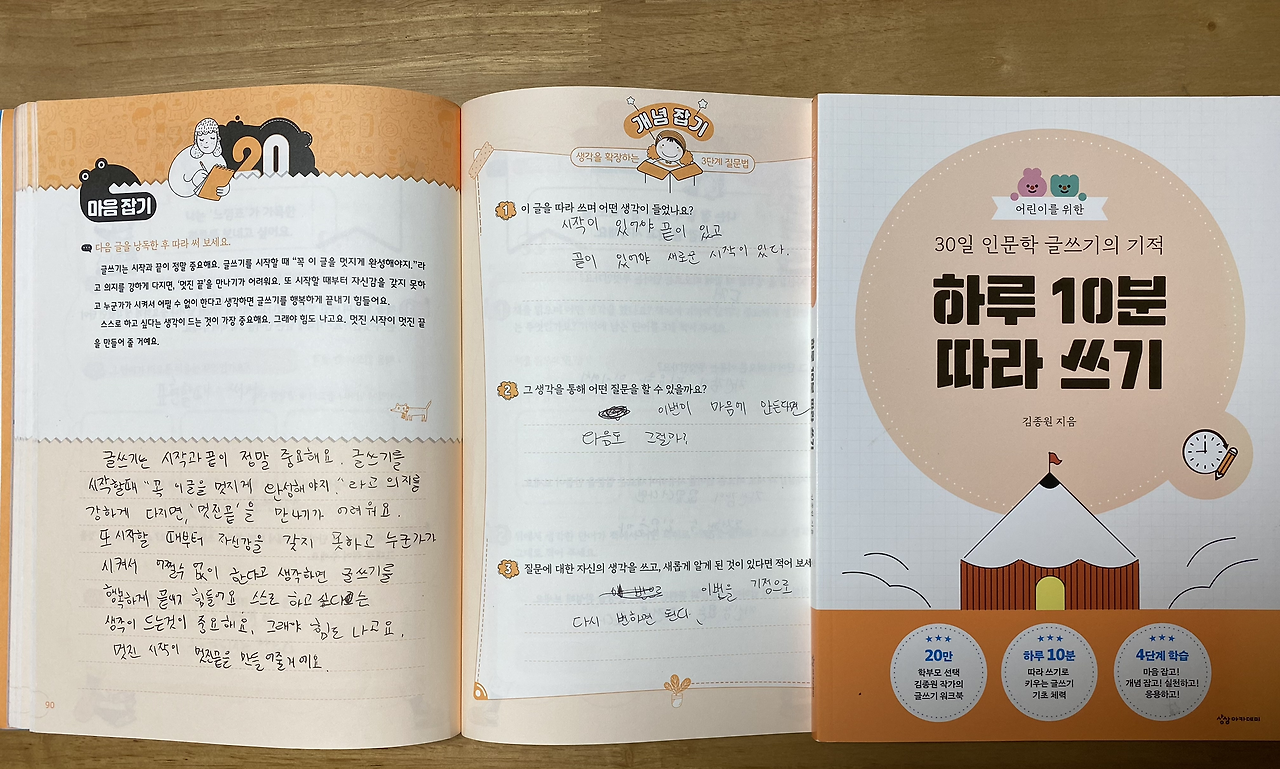 20
마음 잡기
다음 글을 낭독한 후 따라 써 보세요.
글쓰기는 시작과 끝이 정말 중요해요. 글쓰기를 시작할 때 “꼭 이 글을 멋지게 완성해야지.”라
고 의지를 강하게 다지면, ‘멋진 끝’을 만나기가 어려워요. 또 시작할 때부터 자신감을 갖지 못하
고 누군가가 시켜서 어쩔 수 없이 한다고 생각하면 글쓰기를 행복하게 끝내기 힘들어요.
스스로 하고 싶다는 생각이 드는 것이 가장 중요해요. 그래야 힘도 나고요. 멋진 시작이 멋진 끝
을 만들어 줄 거예요.
글쓰기는 시작과 끝이 정말 중요해요. 글쓰기를
시작할때 “꼭 이글을 멋지게 완성해야지.”라고 의지를
강하게 다지면, ‘멋진끝’을 만나기가 어려워요.
또 시작할 때부터 자신감을 갖지 못하고 누군가가
시켜서 어쩔수 없이 한다고 생각하면 글쓰기를
행복하게 끝내기 힘들어요 스스로 하고 싶다는
생각이 드는것이 중요해요. 그래야 힘도 나고요.
멋진 시작이 멋진끝을 만들어줄거예요.
90
개념 잡기
생각을 확장하는 3단계 질문법
1 이 글을 따라 쓰며 어떤 생각이 들었나요?
시작이 있어야 끝이 있고
끝이 있어야 새로운 시작이 있다.
2 그 생각을 통해 어떤 질문을 할 수 있을까요?
이번이 마음에 안든다면
다음도 그럴까?
3 질문에 대한 자신의 생각을 쓰고, 새롭게 알게 된 것이 있다면 적어 보세
이번을 기점으로
다시 변하면 된다.
어린이를 위한
30일 인문학 글쓰기의 기적
하루 10분
따라 쓰기
김종원 지음
20만
학부모 선택
김종원 작가의
글쓰기 워크북
하루 10분
따라 쓰기로
키우는 글쓰기
기초 체력
4단계 학습
마음 잡고!
개념 잡고! 실천하고!
응용하고!
상상아카데미